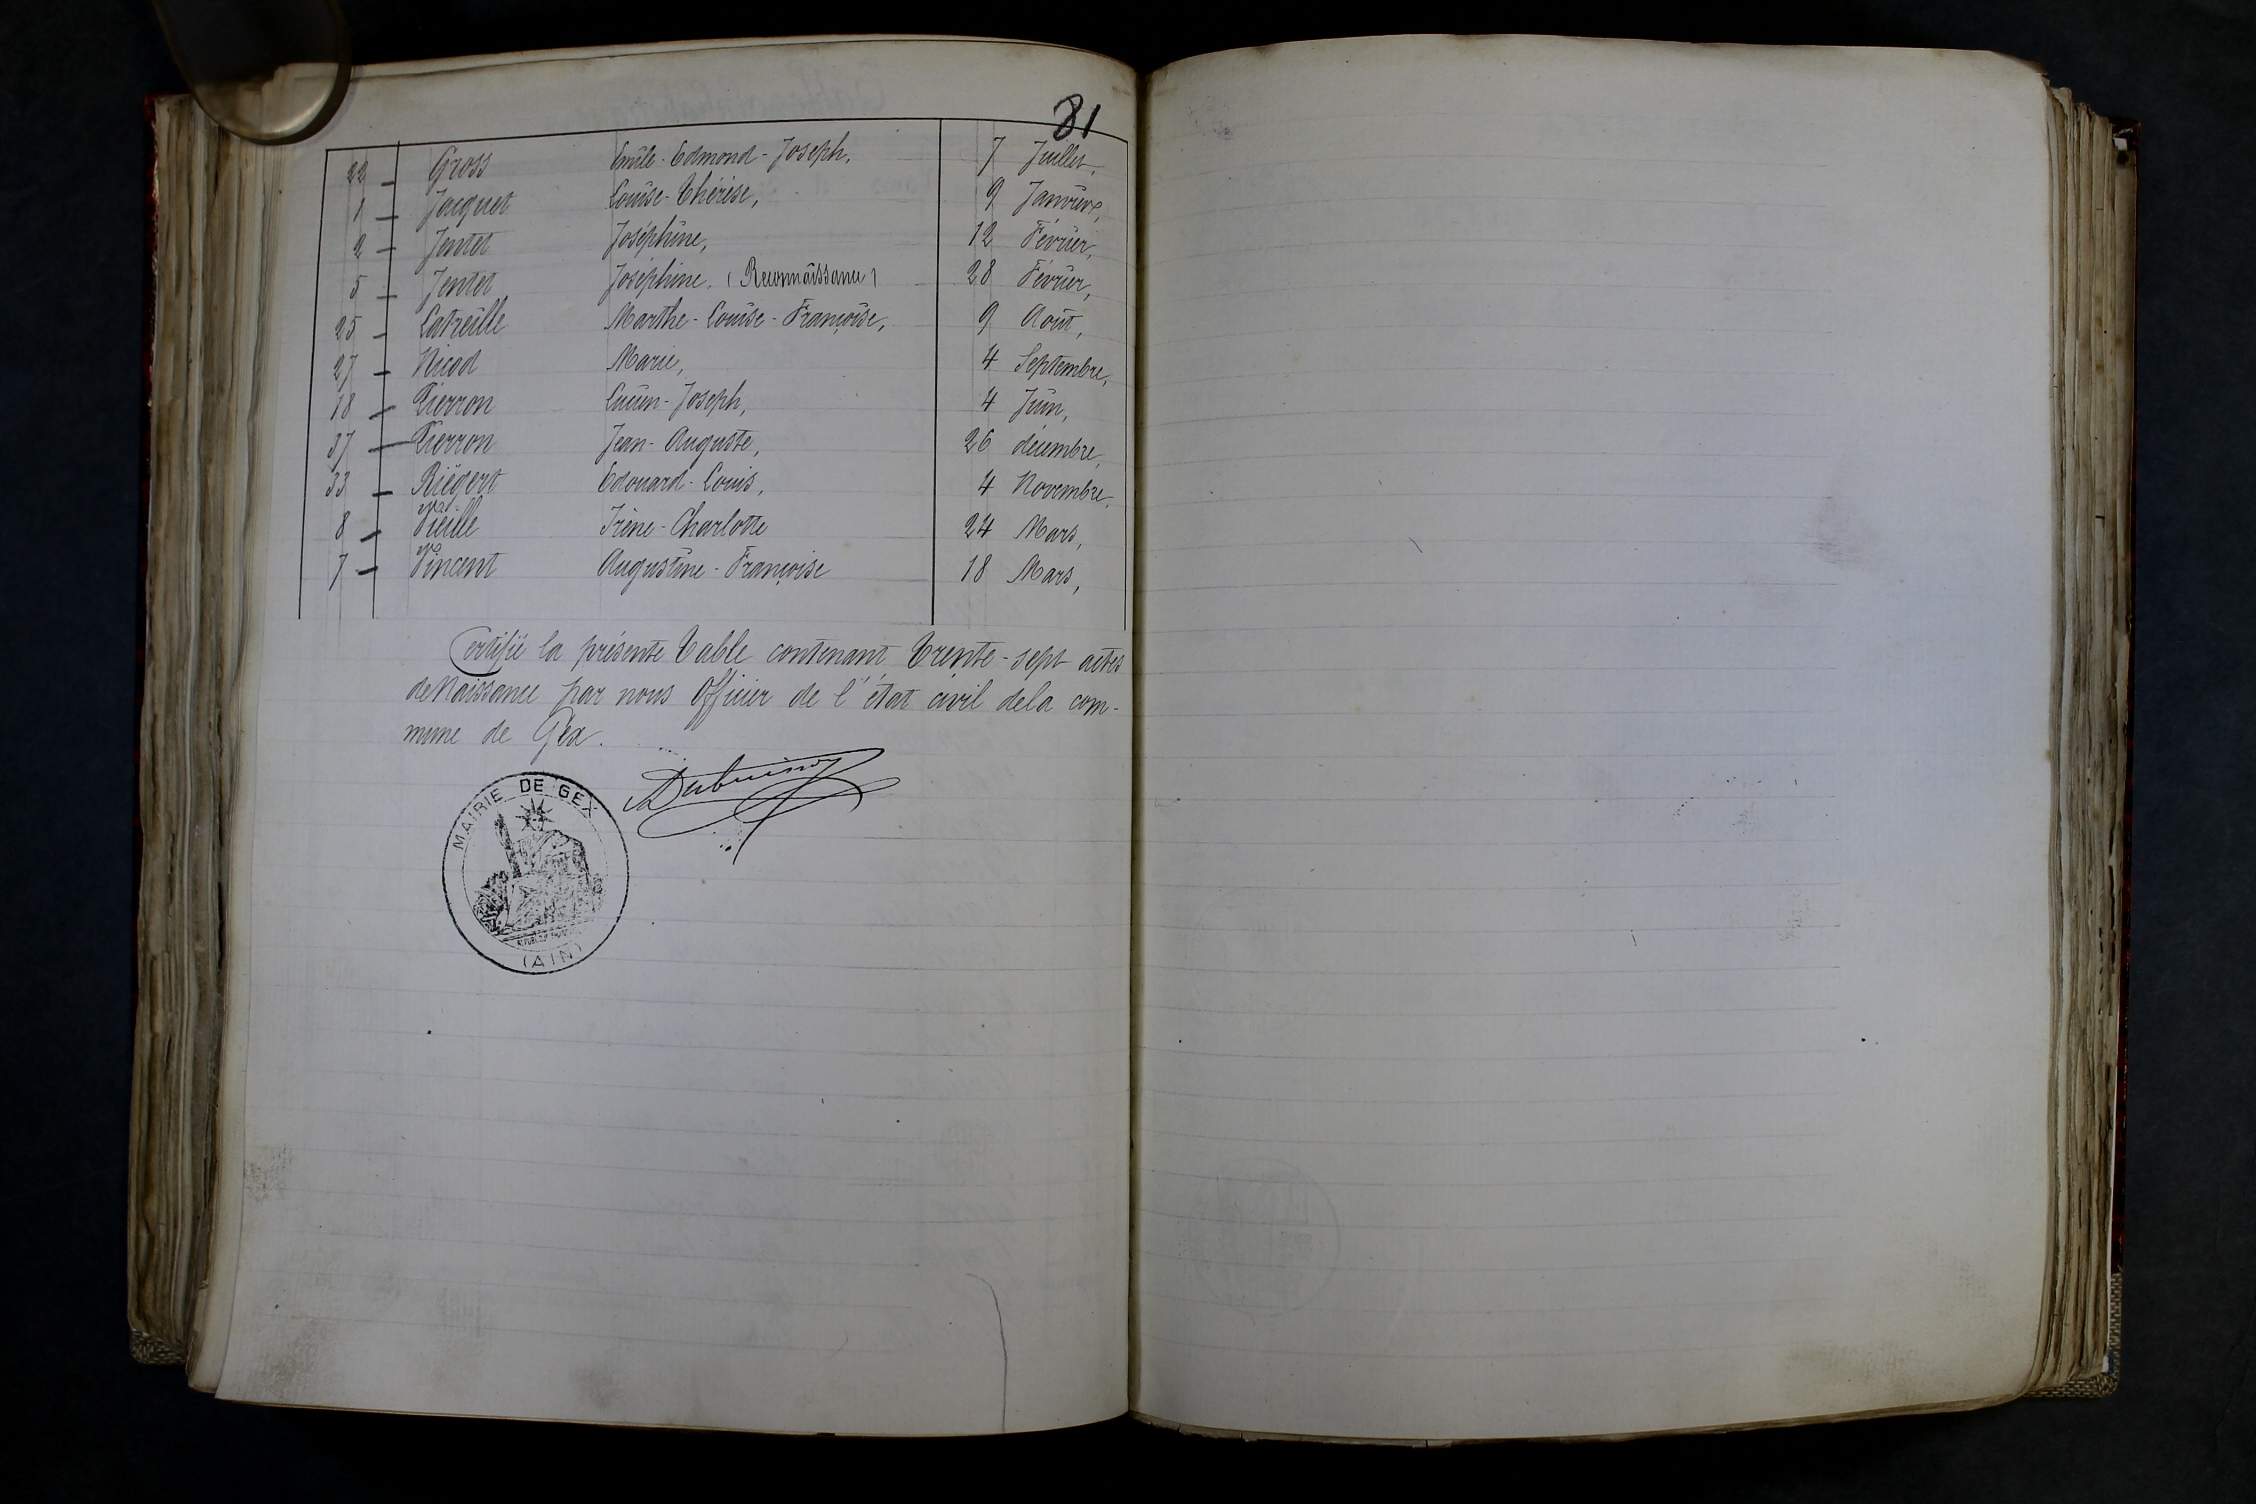 81
22 - Gross Emile-Edmond-Joseph, 7 Juillet,
1 - Jacquet Louise-Thérèse, 9 Janvier,
2 - Jentet Joséphine, 12 Février,
5 - Jentet Joséphine. (Reconnaissance) 28 Février,
25 - Latreille Marthe-Louise-Françoise, 9 Août,
27 - Nicod Marie, 4 Septembre,
18 - Pierron Lucien-Joseph, 4 Juin,
37 - Pierron Jean-Auguste, 26 décembre,
33 - Riègert Edouard-Louis, 4 Novembre,
8 - Vieille Irène-Charlotte 24 Mars,
7 - Vincent Augustine-Françoise 18 Mars,
Certifié la présente Table contenant Trente-sept actes
de Naissance par nous Officier de l'état civil de la com-
mune de Gex.
MAIRIE DE GEX
(AIN)